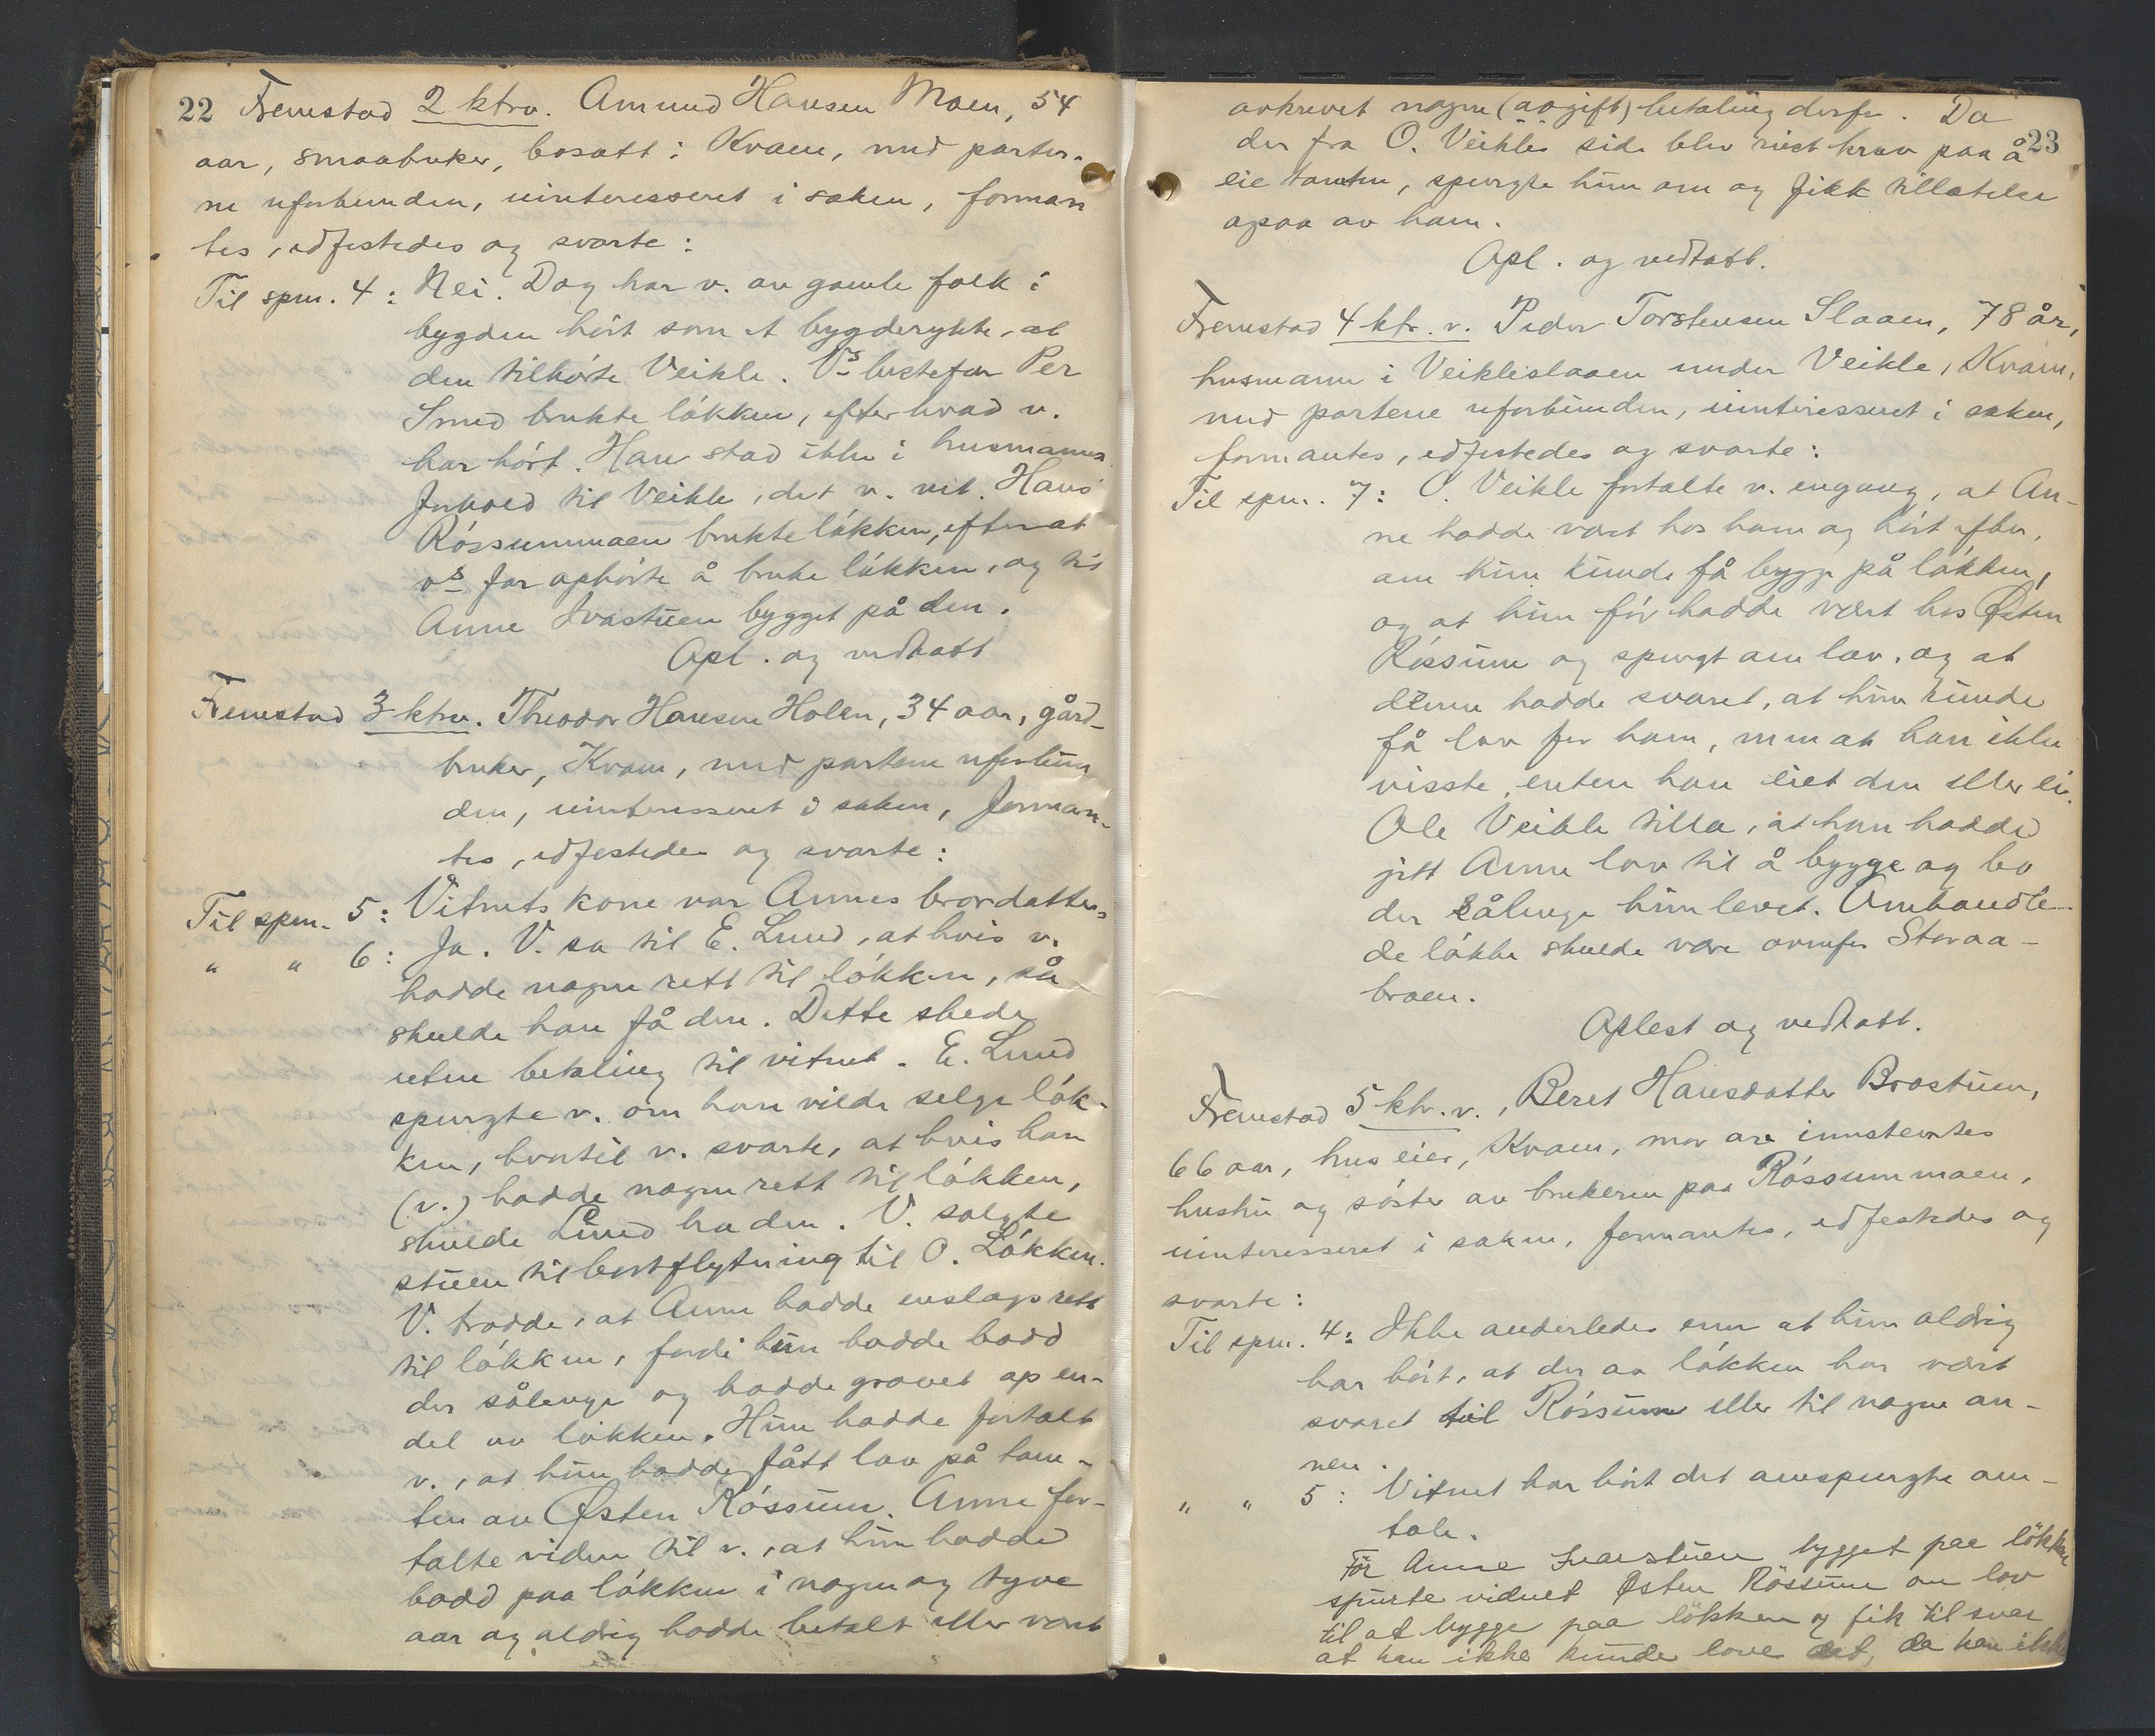 22 Fremstod 2 ktrv. Amund Hansen Moen, 54
aar, smaabruker, bosatt i Kvam, med parter-
ne uforbunden, uinteressert i saken, forman
tes, edfestedes og svarte:
Til spm. 4: Nei. Dog har v. av gamle folk i
bygden hört som et bygderykte, at
den tilhörte Veikle. Vs bestefar Per
Smed brukte lökken, efter hvad v.
har hört. Han stod ikke i husmanns
forhold til Veikle, det v. vet. Hans
Rössummoen brukte lökken, efterat
vs far ophörte å bruke lökken, og til
Anne Ivastuen bygget på den.
Opl. og vedtatt
Fremstod 3 ktrv. Theodor Hansen Holen, 34 aar, gård-
bruker, Kvam, med partene uforbun
den, uinteressert i saken, forman-
tes, edfestedes og svarte:
Til spm. 5: Vitnets kone var Annes brordatter.
" " 6: Ja. V. sa til E. Lund, at hvis v.
hadde nogen rett til lökken, så
skulde han få den. Dette skede
uten betaling til vitnet. E. Lund
spurgte v. om han vilde selge lök-
ken, hvortil v. svarte, at hvis han
(v.) hadde nogen rett til lökken,
skulde Lund ha den. V. solgte
stuen til bortflytning til O. Lökken.
V. trodde, at Anne hadde enslags rett
til lökken, fordi hun hadde bodd
der sålenge og hadde gravet op en-
del av lökken. Hun hadde fortalt
v., at hun hadde fått lov på tom-
ten av Østen Rössum. Anne for-
talte videre til v., at hun hadde
bodd paa lökken i nogen og tyve
aar og aldrig hadde betalt eller vært
avkrevet nogen (avgift) betaling derfor. Da
23
der fra O. Veikles side blev reist krav paa å
eie tomten, spurgte hun om og fikk tillatelse
ogsaa av ham.
Opl. og vedtatt.
Fremstod 4 ktr. v. Peder Torstensen Slaaen, 78 år,
husmann i Veikleslaaen under Veikle, Kvam,
med partene uforbunden, uinteressert i saken,
formantes, edfestedes og svarte:
Til spm. 7: O. Veikle fortalte v. engang, at An-
ne hadde vært hos ham og hört efter,
om hun kunde få bygge på lökken,
og at hun för hadde vært hos Østen
Rössum og spurgt om lov, og at
denne hadde svaret, at hun kunde
få lov for ham, men at han ikke
visste, enten han eiet den eller ei.
Ole Veikle tilla, at han hadde
gitt Anne lov til å bygge og bo
der sålenge hun levet. Omhandle-
de lökke skulde være ovenfor Storaa-
broen.
Oplest og vedtatt.
Fremstod 5 ktr. v., Beret Hansdatter Brostuen,
66 aar, huseier, Kvam, mor av innstevntes
hustru og söster av brukeren paa Rössummoen,
uinteressert i saken, formantes, edfestedes og
svarte:
Til spm. 4: Ikke anderledes enn at hun aldrig
har hört, at der av lökken har vært
svaret til Rössum eller til nogen an-
nen.
" " 5: Vitnet har hört det omspurgte om-
tale.
För Anne Ivarstuen bygget paa lökken
spurte vidnet Østen Rössum om lov
til at bygge paa lökken og fik til svar
at han ikke kunde love det, da han ikke